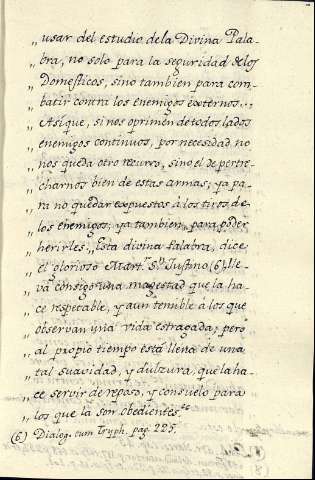 „ usar del estudio de la Divina Pala-
„ bra, no solo para la seguridad de los
„ Domesticos, sino tambien para com-
„ batir contra los enemigos externos...
„ Asi que, si nos oprimen de todos lados
„ enemigos continuos, por necesidad no
„ nos queda otro recurso, sino el de pertre-
„ charnos bien de estas armas; ya pa-
„ ra no quedar expuestos à los tiros de
„ los enemigos; ya tambien para poder
„ herirles. „ Esta divina palabra, dice
„ el glorioso Mart.r S.n Justino (6) lle-
„ va consigo una magestad que la ha-
„ ce respetable, y aun temible à los que
„ observan una vida estragada; pero
„ al propio tiempo està llena de una
„ tal suavidad, y dulzura, que la ha-
„ ce servir de reposo, y consuelo para
„ los que la son obedientes."
(6) Dialog. cum Tryph. pag. 225.